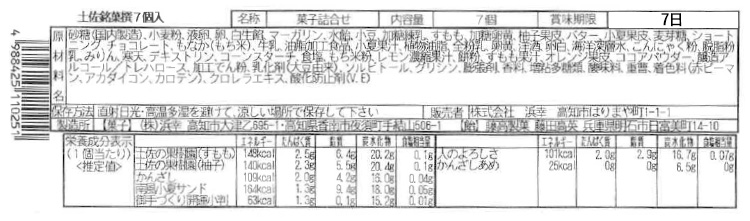 土佐銘菓撰7個入
名称 菓子詰合せ 内容量 7個 賞味期限 7日
原材料名
砂糖(国内製造)、小麦粉、液卵、卵、白生餡、マーガリン、水飴、小豆、加糖練乳、すもも、加糖卵黄、柚子果皮、バター、小夏果皮、麦芽糖、ショート
ニング、チョコレート、もなか(もち米)、牛乳、油脂加工食品、小夏果汁、植物油脂、全粉乳、卵黄、洋酒、卵白、海洋深層水、こんにゃく粉、脱脂粉
乳、みりん、寒天、デキストリン、コーンスターチ、食塩、もち米粉、レモン濃縮果汁、餅粉、すもも果汁、オレンジ果皮、ココアパウダー、醸造ア
ルコール/トレハロース、加工でん粉、乳化剤(大豆由来)、ソルビトール、グリシン、膨張剤、香料、増粘多糖類、酸味料、重曹、着色料(赤ビーマ
ン、アカダイコン、カロテン)、クロレラエキス、酸化防止剤(V.E)
保存方法 直射日光・高温多湿を避けて、涼しい場所で保存して下さい 販売者 株式会社 浜幸 高知市はりまや町1-1-1
製造所 【菓子】(株)浜幸 高知市大津乙695-1・高知県香南市夜須町手結山506-1 藤高製菓 藤田高英 兵庫県明石市日富美町14-10
栄養成分表示
(1個当たり)
<推定値>
エネルギー たんぱく質 脂質 炭水化物 食塩相当量
土佐の果樹園(すもも) 148kcal 2.5g 6.4g 20.2g 0.1g
土佐の果樹園(柚子) 140kcal 2.3g 5.5g 20.4g 0.1g
かんざし 109kcal 2.0g 4.2g 16.0g 0.04g
南国小夏サンド 164kcal 1.3g 9.4g 18.0g 0.05g
御手づくり 63kcal 1.3g 0.1g 15.2g 0.01g
エネルギー たんぱく質 脂質 炭水化物 食塩相当量
人のよろしさ 101kcal 2.0g 2.9g 16.7g 0.07g
かんざしあめ 25kcal 0g 0g 6.5g 0g
4984251110251